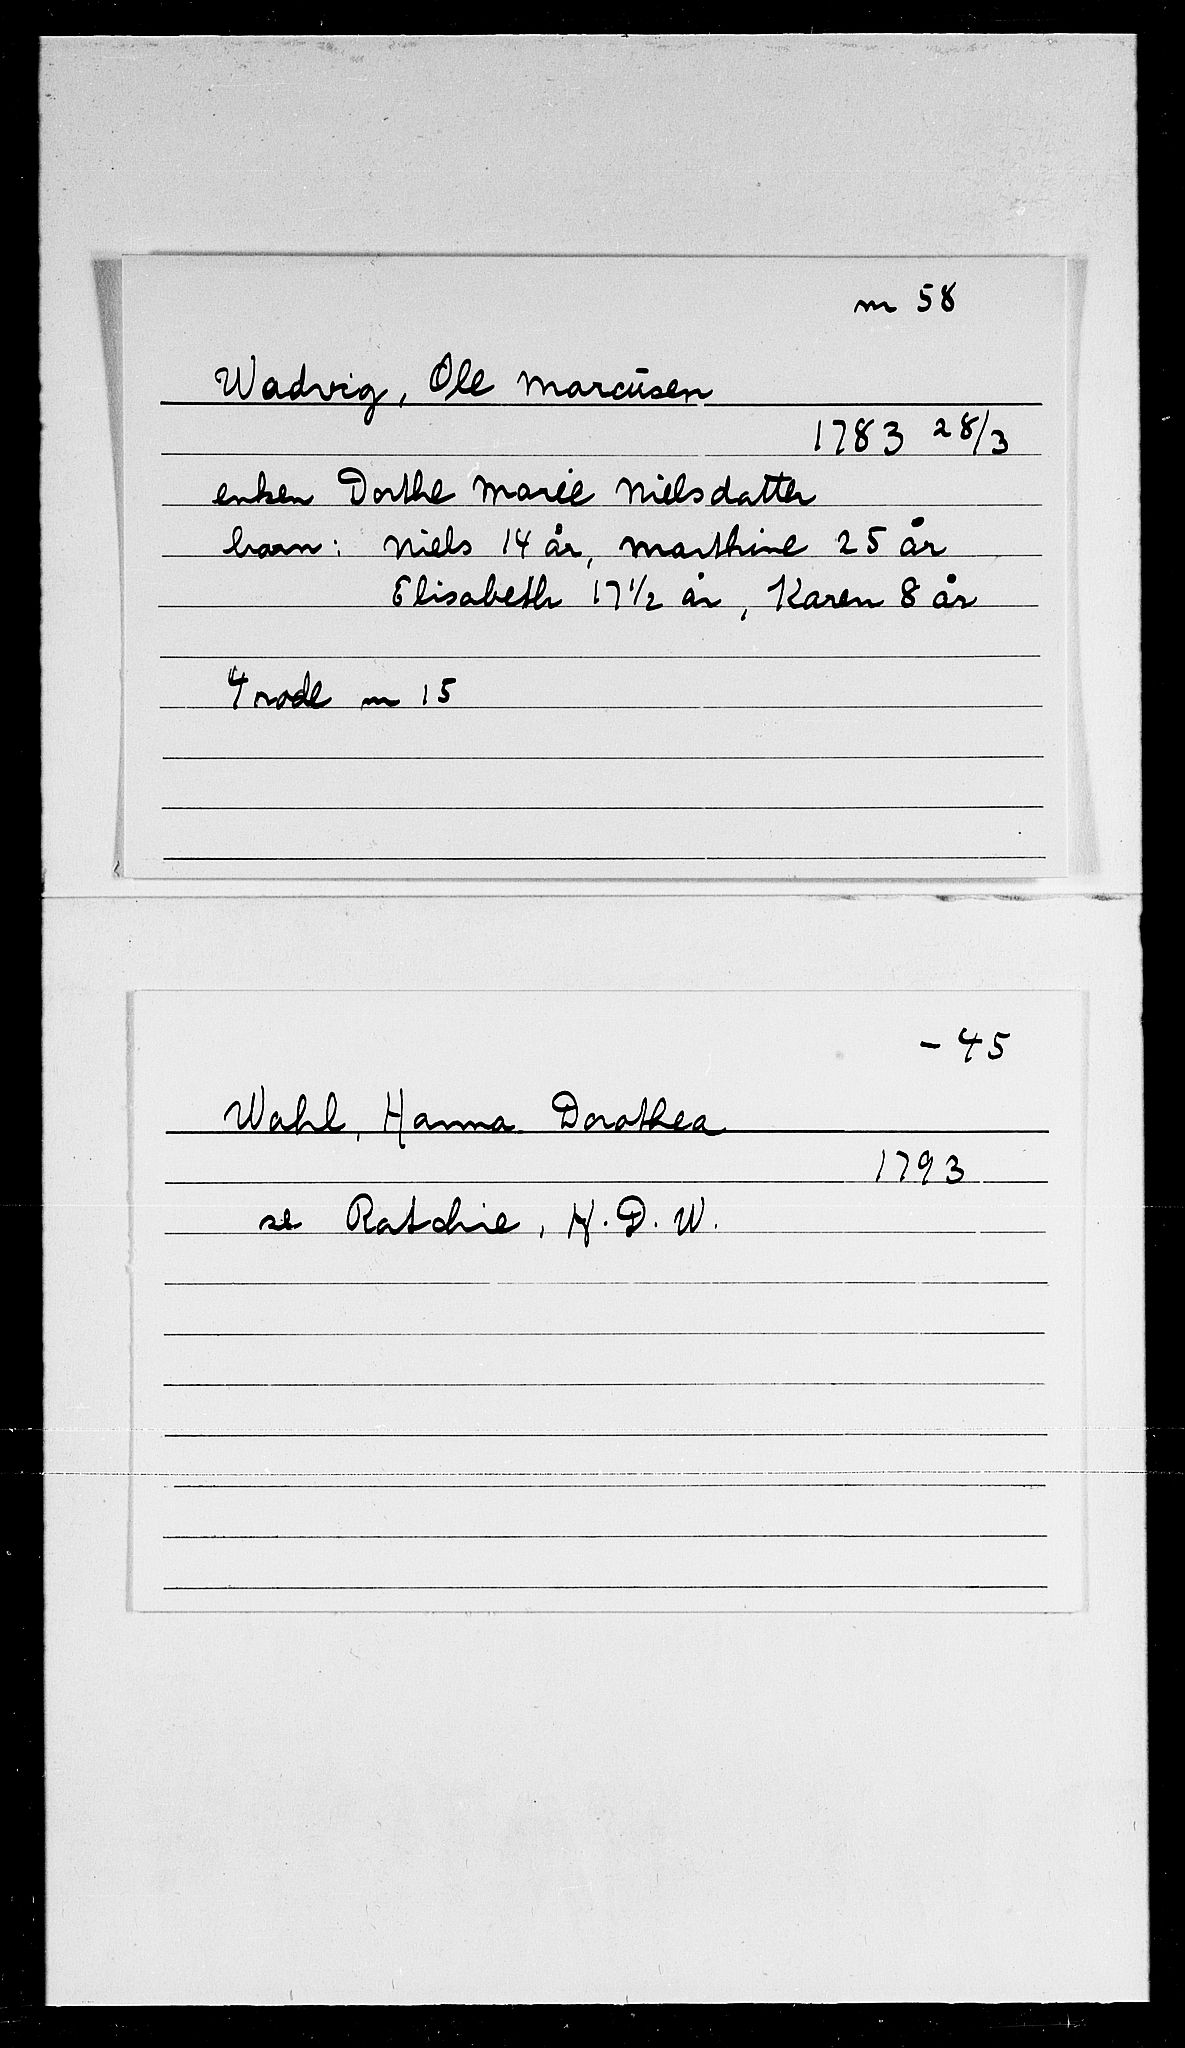 m 58
Wadvig, Ole Marcüsen
1783 28/3
enken Dorthe Marie Nielsdatter
barn: Niels 14 år, Marthine 25 år
Elisabeth 17 1/2 år, Karen 8 år
4 rode m 15
- 45
Wahl, Hanna Dorothea
1793
se Ratchie, H. D. W.